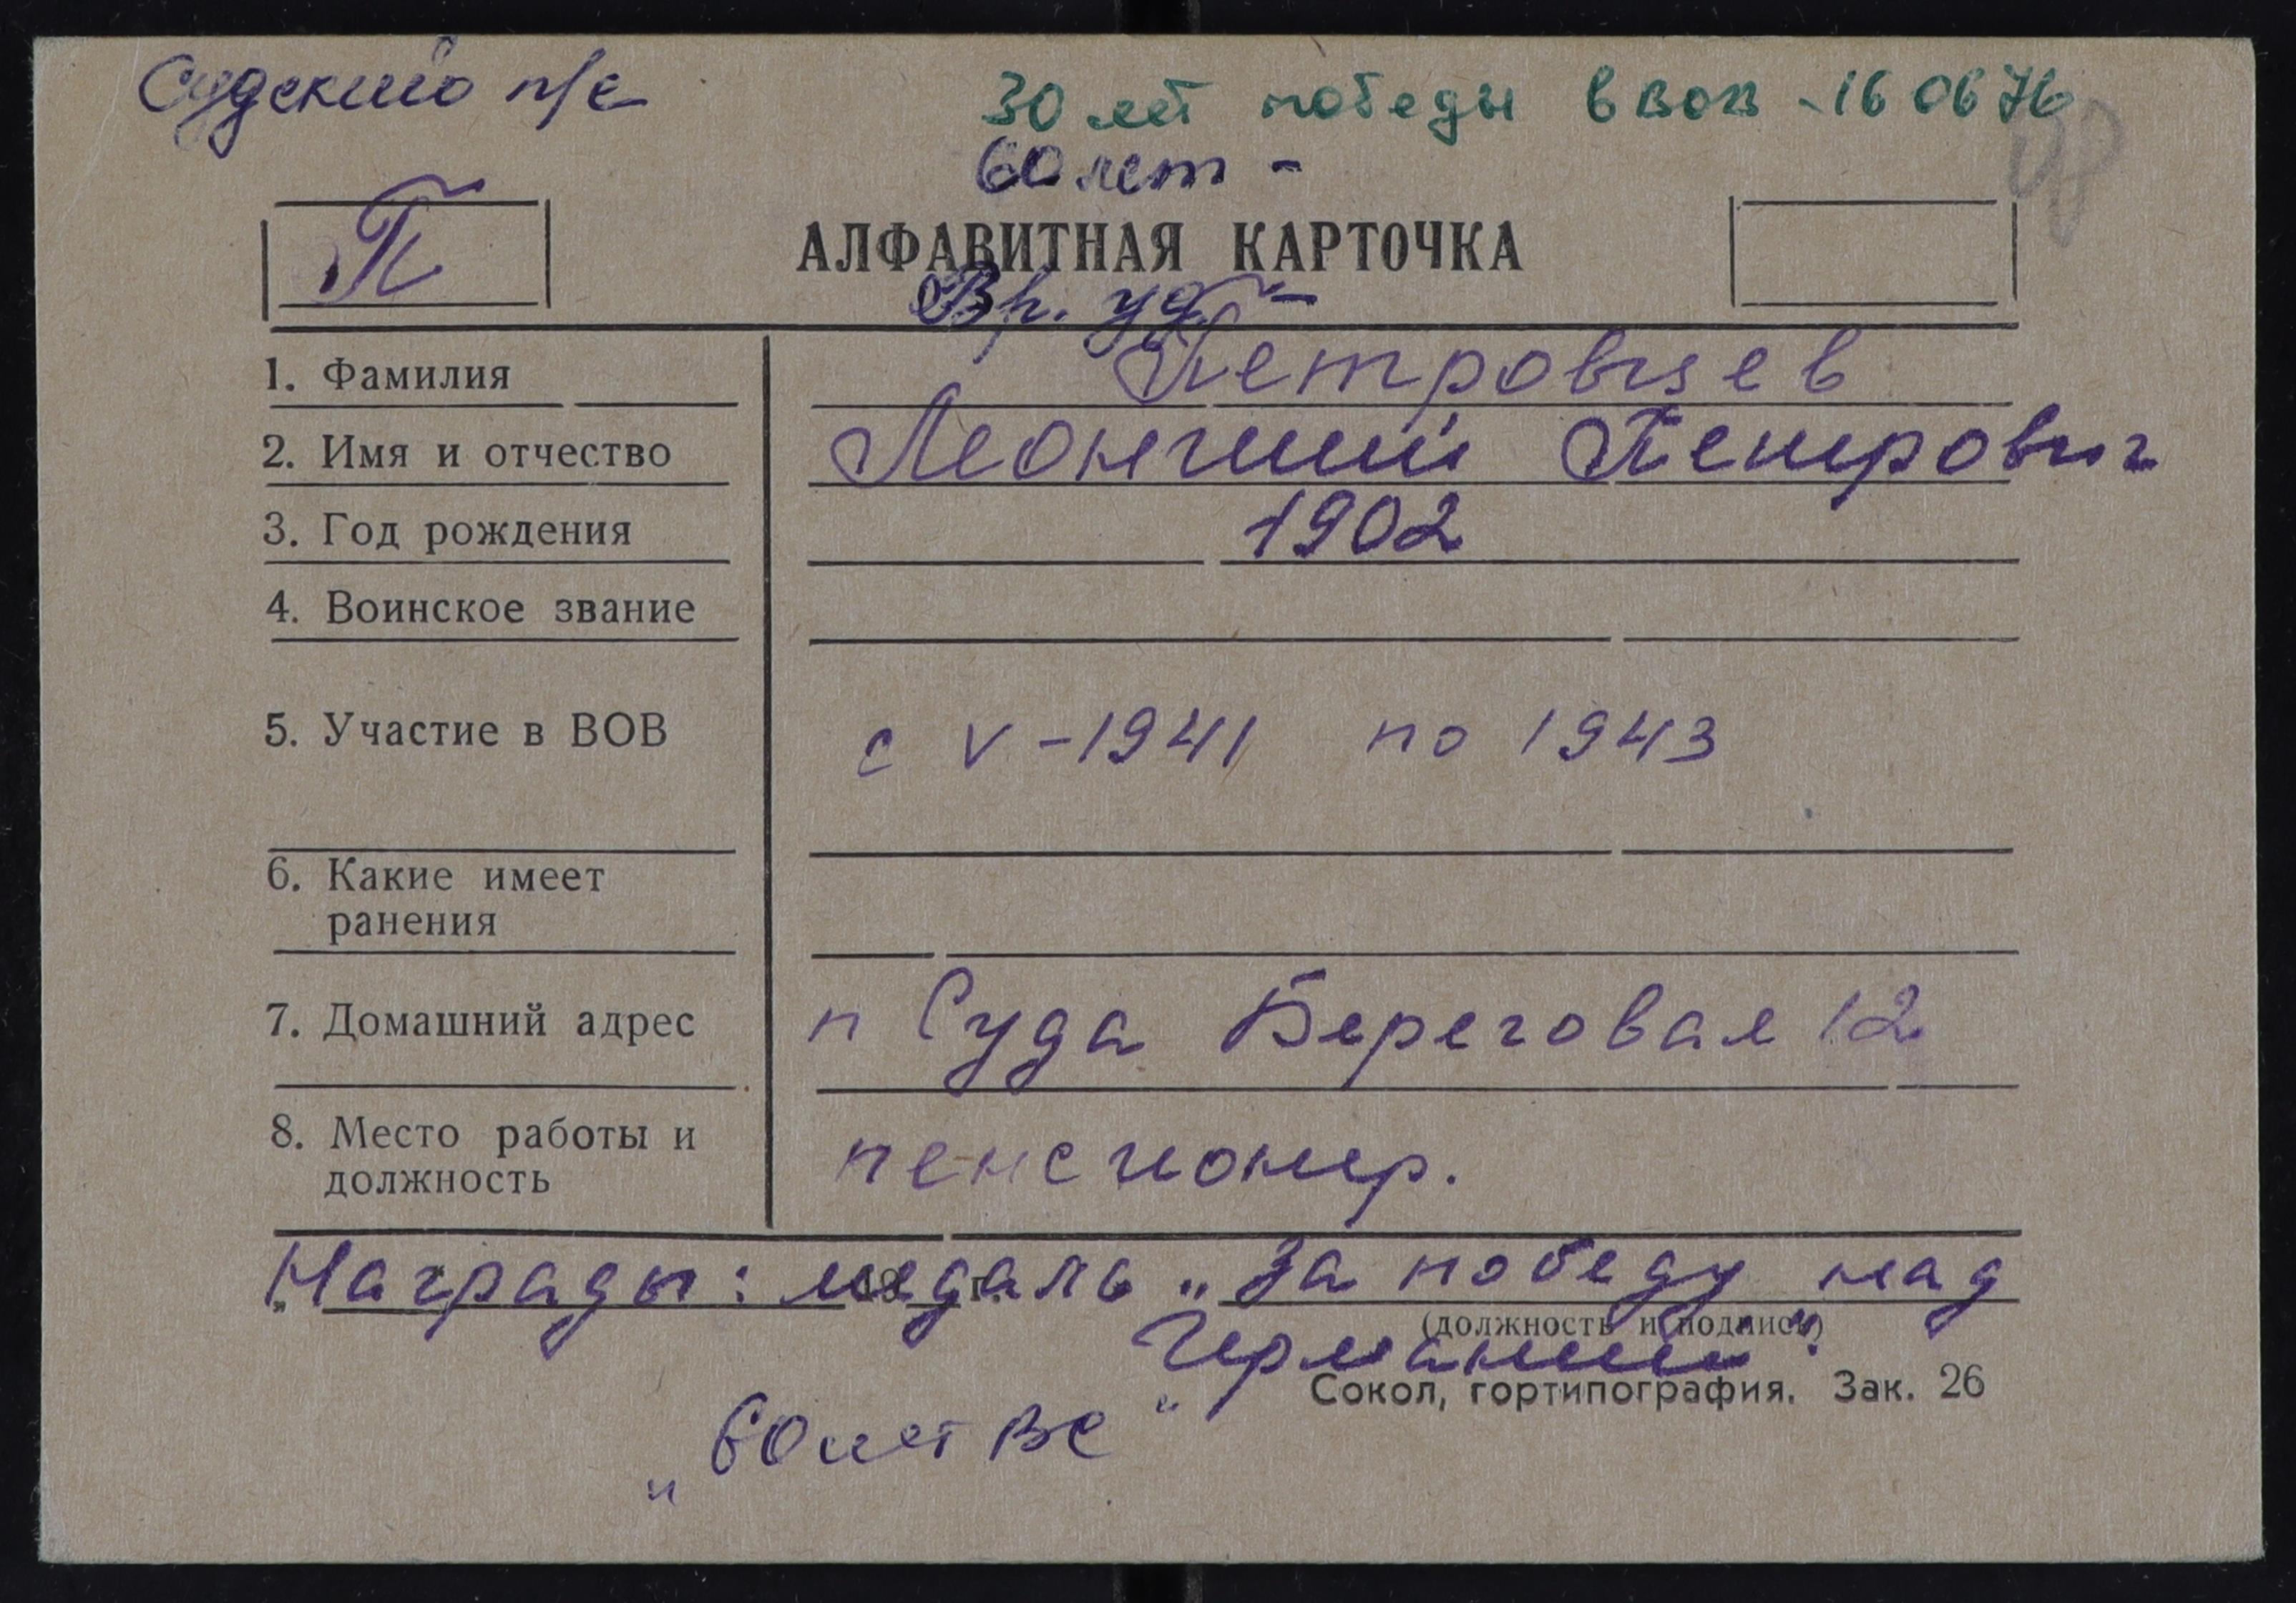 Судский п/с
30 лет победы в ВОВ - 16 06 76
60 лет -
П
АЛФАВИТНАЯ КАРТОЧКА
Вр. уд. -
1. Фамилия Петровцев
2. Имя и отчество Леонтий Петрович
3. Год рождения 1902
4. Воинское звание
5. Участие в ВОВ с V - 1941 по 1943
6. Какие имеет
ранения
7. Домашний адрес п Суда Береговая 12
8. Место работы и
должность пенсионер.
Награды: медаль „За победу над
(должность и подпись)
Германией".
Сокол, гортипография. Зак. 26
„60 лет ВС"